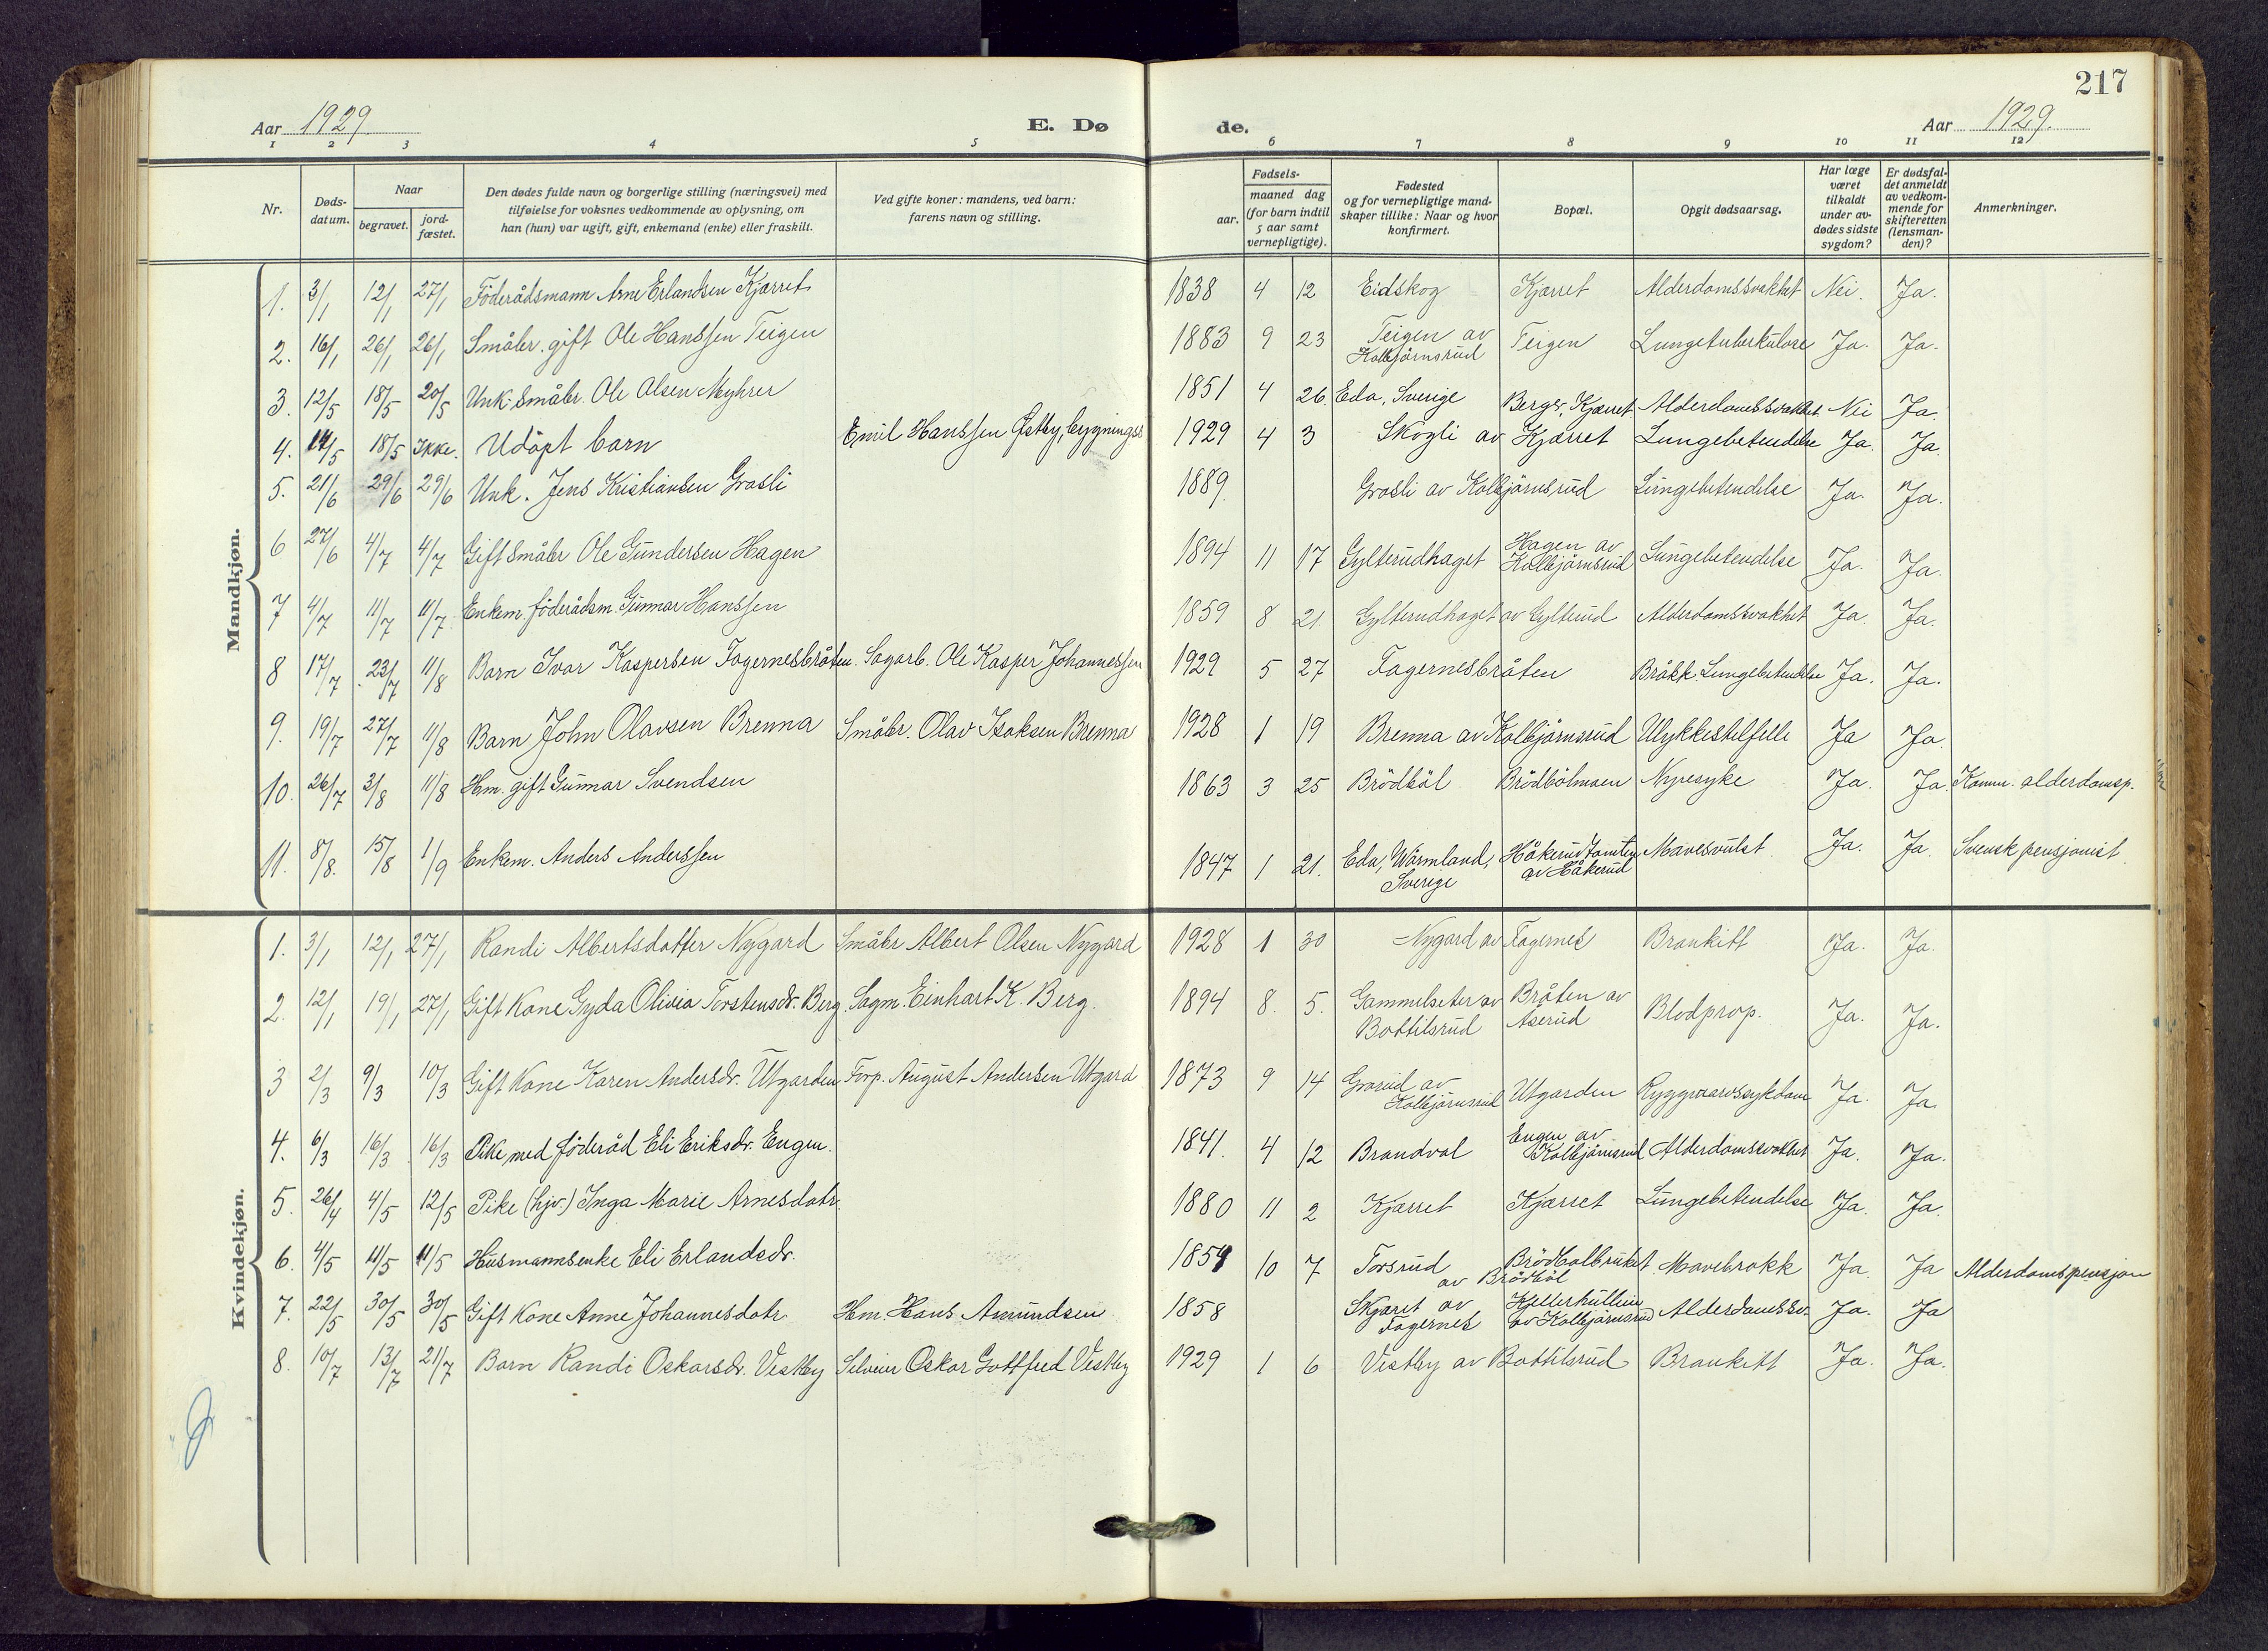 217
Aar 1929 E. Dø de. Aar 1929.
1 2 3 4 5 6 7 8 9 10 11 12
Nr. Døds-datum. Naar begravet. jord-fæstet. Den dødes fulde navn og borgerlige stilling (næringsvei) med tilføielse for voksnes vedkommende av oplysning, om han (hun) var ugift, gift, enkemand (enke) eller fraskilt. Ved gifte koner: mandens, ved barn: farens navn og stilling. Fødsels- aar. maaned dag (for barn indtil 5 aar samt vernepligtige). Fødested og for vernepligtige mand-skaper tillike: Naar og hvor konfirmert. Bopæl. Opgit dødsaarsag. Har læge været tilkaldt under av-dødes sidste sygdom? Er dødsfal-det anmeldt av vedkom-mende for skifteretten (lensman-den)? Anmerkninger.
Mandkjøn.
1. 3/1 12/1 27/1 Föderådsmann Arne Erlandsen Kjærret 1838 4 12 Eidskog Kjærret Alderdomssvakhet Nei. Ja.
2. 16/1 26/1 26/1 Småbr. gift Ole Hanssen Teigen 1883 9 23 Teigen av Kolbjörnsrud Teigen Lungetuberkulose Ja. Ja.
3. 12/5 18/5 20/5 Unk. Småbr. Ole Olsen Myhrer 1851 4 26. Eda, Sverige Berger, Kjærret Alderdomssvakhet. Nei Ja.
4. 14/5 18/5 Ikke. Udöpt barn Emil Hanssen Østby, bygningss 1929 4 3 Skogli av Kjærret Lungebetendelse Ja. Ja.
5. 21/6 29/6 29/6 Unk. Jens Kristiansen Grasli 1889. Grasli av Kolbjörnsrud Lungebetendelse Ja. Ja.
6 27/6 4/7 4/7 Gift småbr Ole Gundersen Hagen 1894 11 17 Gylterudhaget Hagen av Kolbjörnsrud Lungebetendelse Ja. Ja.
7 4/7 11/7 11/7 Enkem. föderådsm. Gunnar Hanssen 1859 8 21. Gylterudhaget av Gylterud Alderdomssvakhet Ja. Ja.
8 17/7 23/7 11/8 Barn Ivar Kaspersen Fagernesbråten. Sagarb. Ole Kasper Johannessen 1929 5 27 Fagernesbråten Bråkk. Lungebetendelse Ja. Ja.
9. 19/7 27/7 11/8 Barn John Olavsen Brenna Småbr. Olav Isaksen Brenna 1928 1 19 Brenna av Kolbjörnsrud Ulykkestilfelle Ja Ja.
10. 26/7 3/8 11/8 Hm. gift Gunnar Svendsen 1863 3 25 Brödböl Brödbölmoen Nyresyke Ja. Ja. Komm. alderdomsp.
11. 8/8. 15/8 1/9 Enkem. Anders Anderssen 1847 1 21. Eda, Wärmland, Sverige Håkerudtomten av Håkerud Mavesvulst Ja. Ja. Svensk pensjonist.
Kvindekjøn.
1. 3/1 12/1 27/1 Randi Albertsdatter Nygard Småbr Albert Olsen Nygard 1928 1 30 Nygard av Fagernes Bronkitt Ja. Ja.
2. 12/1 19/1 27/1 Gift Kone Gyda Olivia Torstensdr. Berg. Sagm. Einhart K. Berg. 1894 8. 5. Gammelseter av Bottilsrud Bråten av Åserud Blodprop. Ja. Ja.
3 2/3 9/3 10/3 Gift Kone Karen Andersdr. Utgarden Torp. August Andersen Utgard 1873 9 14 Grasrud av Kolbjörnsrud Utgarden Ryggmarvssykdom Ja. Ja.
4. 6/3 16/3 16/3 Pike, med föderåd Eli Eriksdr. Engen. 1841. 4 12 Brandval Engen av Kolbjörnsrud Alderdomssvakhet Ja. Ja.
5. 26/4 4/5 12/5 Pike (hjv.) Inga Marie Arnesdatr. 1880 11 2 Kjærret Kjærret Lungebetendelse Ja. Ja.
6. 4/5 11/5 11/5 Husmannsenke Eli Erlandsdr. 1859 10 7 Torsrud av Brödböl Brödbolbruket Mavebrokk Ja. Ja Alderdomspensjon
7. 22/5 30/5 30/5 Gift Kone Anne Johannesdatr Hm. Hans Amundsen 1858 Skjæret av Fagernes av Kolbjörnsrud Alderdomssv. Ja. Ja
8. 10/7 13/7 21/7 Barn Randi Oskarsdr. Vestby Oskar Gottfred Vestby 1929 1 6 Vestby av Bottilsrud Bronkitt Ja. Ja.